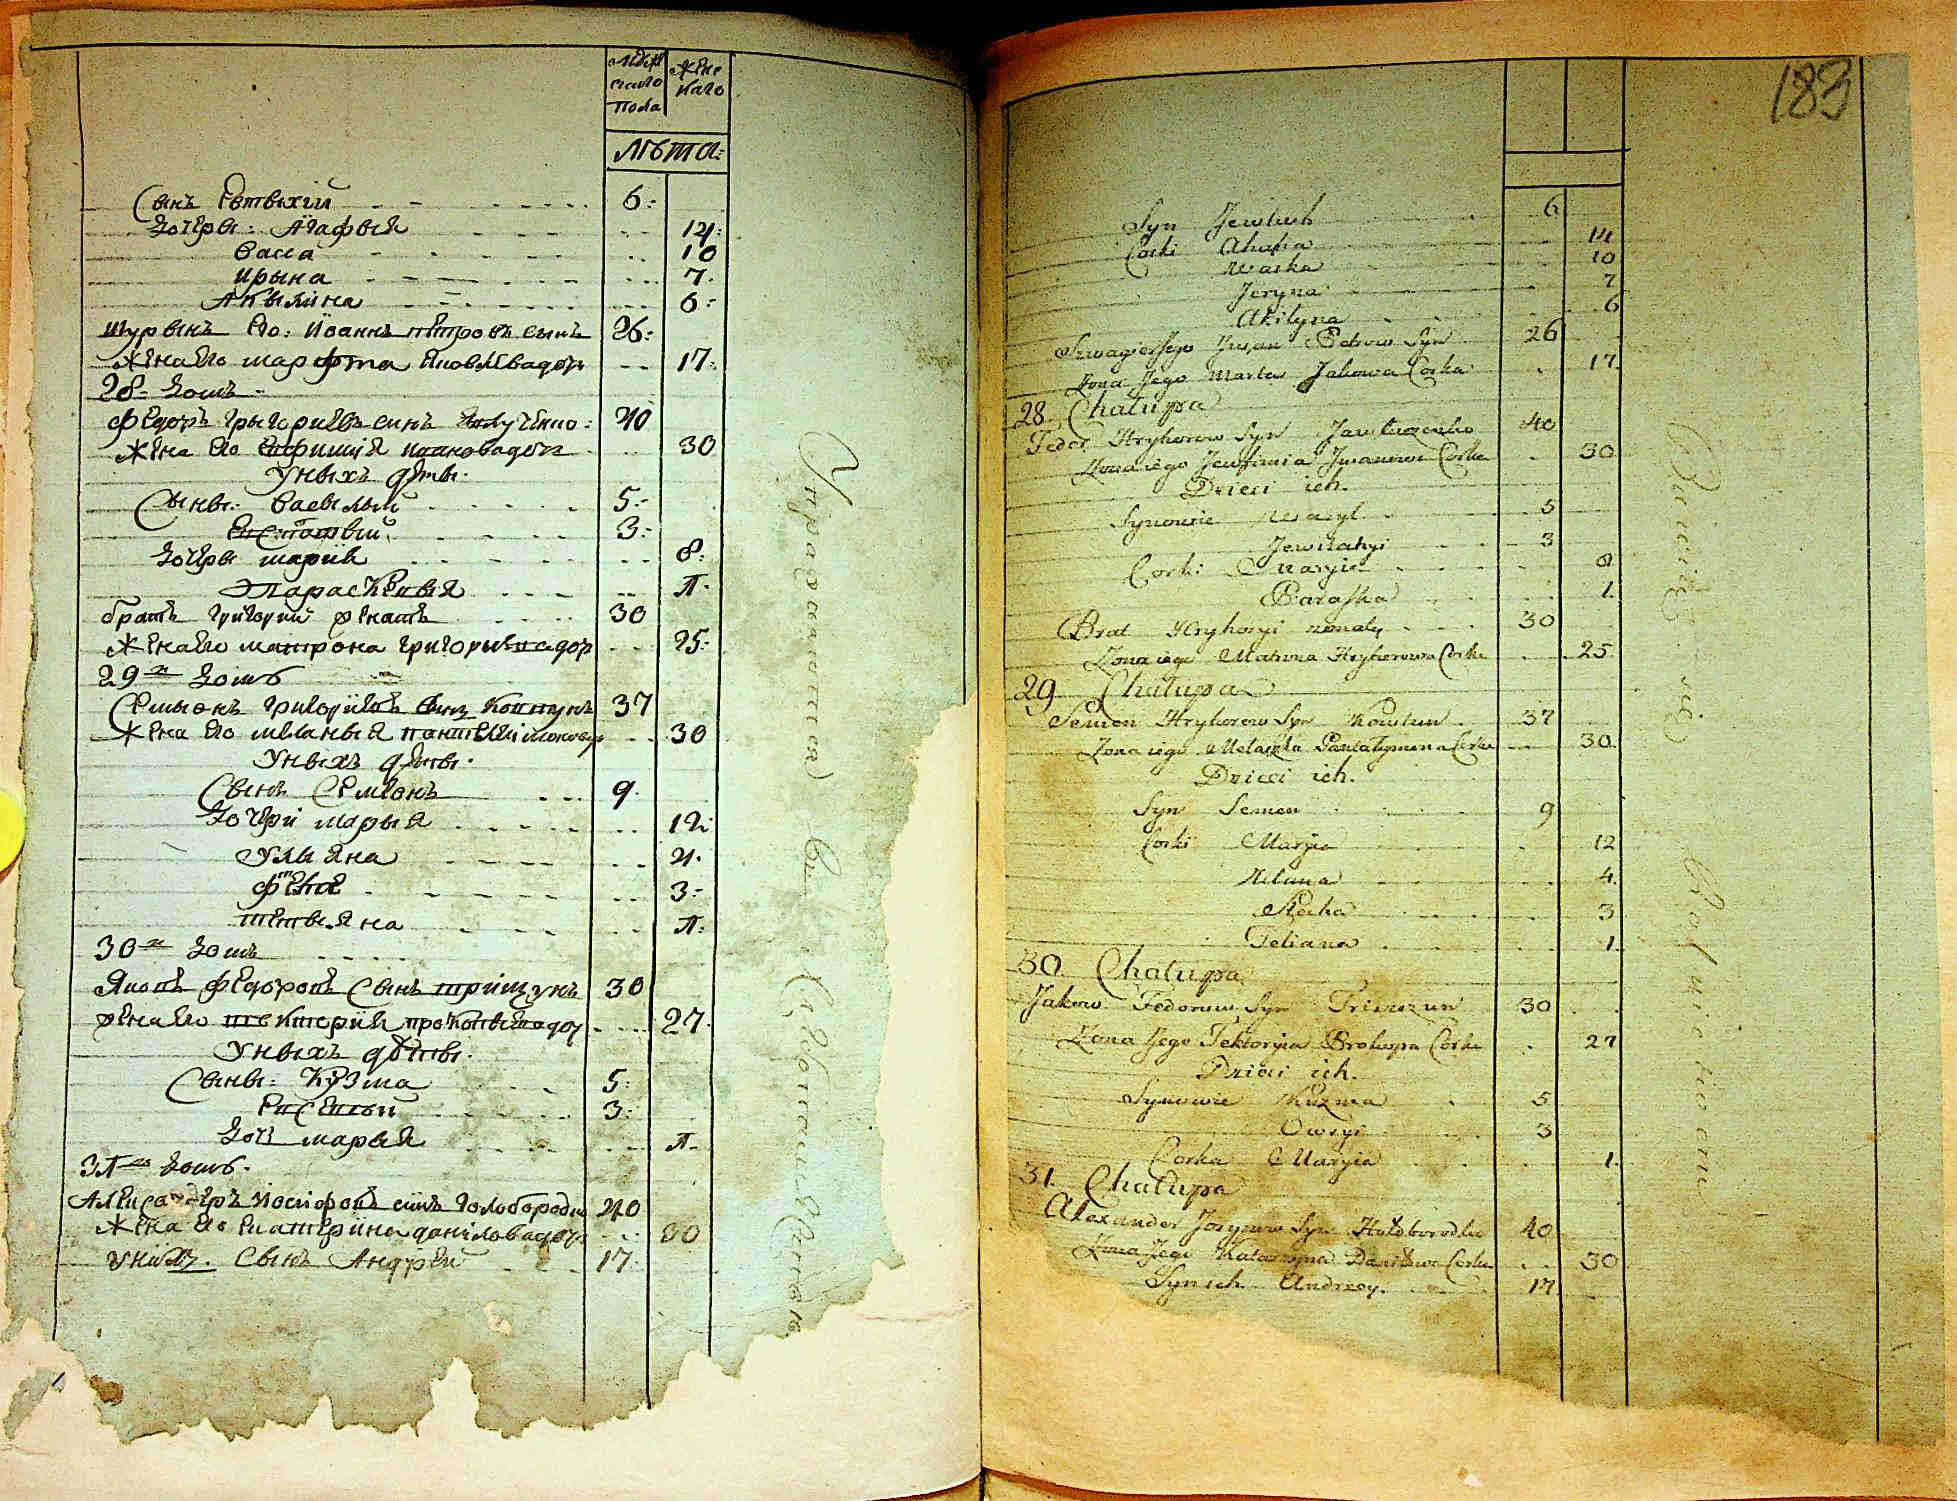 Мужескаго Пола
Женскаго
Лѣта:
Сынъ Евтыхiй 6:
Дочеры: Агафыя 14:
Васса 10
Ирына 7.
Акылина 6:
Шурынъ Его: Иоаннъ Петровъ сынъ 26:
Жена Его Марфта Яковлевадоч 17:
28- Домъ
Федоръ Грыгориевъ синъ 40
Жена Его Евфимия Ивановадоч 30
Уныхъ дѣты.
Сыны: Васылый 5:
3:
Дочеры Мария 8:
Параскевия 1.
братъ Григорий женатъ 30
Жена Его Матрона Григорьевадоч 25:
29й Домъ
Семыонъ Григориевъ сынъ Ковтунъ 37
Жена Его Меланыя Пантелиимоновадо 30
Уныхъ дѣты.
Сынъ Семионъ 9.
Дочери Марыя 12:
Улыяна 4.
Фекла 3:
Тетыяна 1:
30й Домъ
Яковъ Федоровъ Сынъ Трищунъ 30
жена Его Прокопиевадоч 27.
Уныхъ дѣты.
Сыны: Кузма 5:
3:
Доч Марыя 1.
31й Домъ.
Александеръ Иосифовъ синъ Голобородко 40
Жена Его Екатерина Даниловадоч 30
Унихъ. Сынъ Андрей 17.
183
Syn Jewtuch 6
Corki Ahafia 14
Waska 10
Jeryna 7
Akilyna 6
Szwagier Jego Jwan Petrow Syn 26
Zona Jego Marta Jakowa Corka 17.
28 Chalupa
Fedor Hryhorow Syn 40
Zona iego Jewfimia Jwanowa Corka 30
Dzieci ich.
Synowie Wasyl 5
3
Corki Maryia 8
Paraska 1.
Brat Hryhoryi zonaty 30
Zona iego Matrona Hryhorowa Corka 25
29 Chalupa
Semen Hryhorow Syn Kowtun 37
Zona iego Melaszka Pantalymona Corka 30
Dzieci ich.
Syn Semen 9
Corki Maryia 12
Uliana 4.
Fekla 3
Tetiana 1
30 Chalupa
Jakow Fedorow Syn Triszczun 30
Zona Jego Prokopa Corka 27
Dzieci ich.
Synowie Kuzma 5
Owsyi 3
Corka Maryia 1.
31. Chalupa
Alexander Jozypow Syn Holoborodko 40
Zona Jego Katarzyna Danilowa Corka 30
Syn ich Andrzey. 17